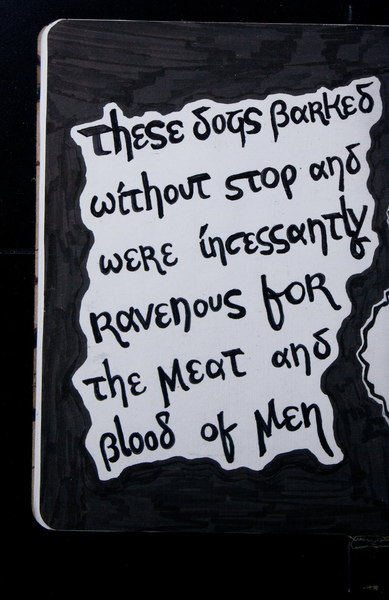 These dogs barked
without stop and
were incessantly
ravenous for
the meat and
blood of men